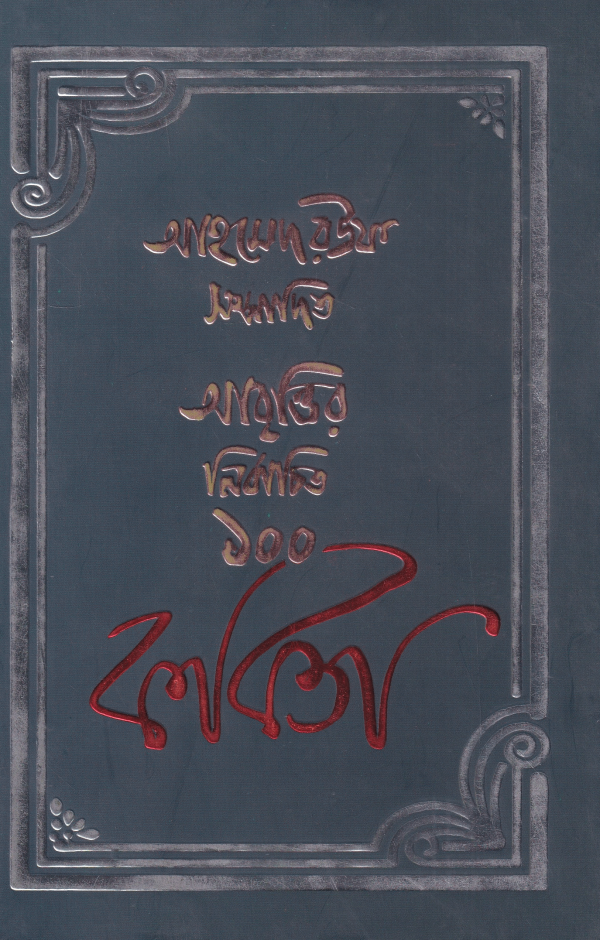 আহমেদ রউফ
সম্পাদিত
আবৃত্তির
নির্বাচিত
১০০
কবিতা